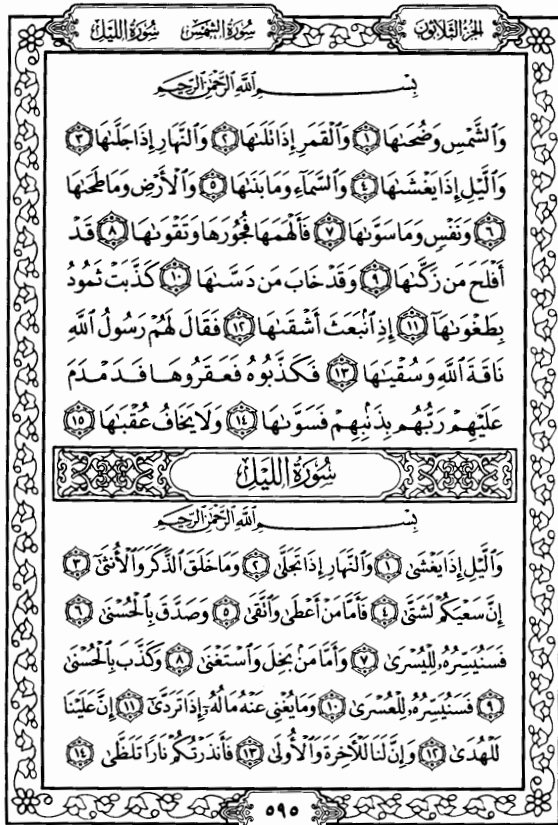 الجزء الثلاثون
سورة الشمس سورة الليل
بِسْمِ اللَّهِ الرَّحْمَٰنِ الرَّحِيمِ
وَالشَّمْسِ وَضُحَىٰهَا ۝١ وَالْقَمَرِ إِذَا تَلَىٰهَا ۝٢ وَالنَّهَارِ إِذَا جَلَّىٰهَا ۝٣
وَالَّيْلِ إِذَا يَغْشَىٰهَا ۝٤ وَالسَّمَاءِ وَمَا بَنَىٰهَا ۝٥ وَالْأَرْضِ وَمَا طَحَىٰهَا
۝٦ وَنَفْسٍ وَمَا سَوَّىٰهَا ۝٧ فَأَلْهَمَهَا فُجُورَهَا وَتَقْوَىٰهَا ۝٨ قَدْ
أَفْلَحَ مَن زَكَّىٰهَا ۝٩ وَقَدْ خَابَ مَن دَسَّىٰهَا ۝١٠ كَذَّبَتْ ثَمُودُ
بِطَغْوَىٰهَا ۝١١ إِذِ انۢبَعَثَ أَشْقَىٰهَا ۝١٢ فَقَالَ لَهُمْ رَسُولُ اللَّهِ
نَاقَةَ اللَّهِ وَسُقْيَٰهَا ۝١٣ فَكَذَّبُوهُ فَعَقَرُوهَا فَدَمْدَمَ
عَلَيْهِمْ رَبُّهُم بِذَنۢبِهِمْ فَسَوَّىٰهَا ۝١٤ وَلَا يَخَافُ عُقْبَٰهَا ۝١٥
سُورَةُ اللَّيْلِ
بِسْمِ اللَّهِ الرَّحْمَٰنِ الرَّحِيمِ
وَالَّيْلِ إِذَا يَغْشَىٰ ۝١ وَالنَّهَارِ إِذَا تَجَلَّىٰ ۝٢ وَمَا خَلَقَ الذَّكَرَ وَالْأُنثَىٰ ۝٣
إِنَّ سَعْيَكُمْ لَشَتَّىٰ ۝٤ فَأَمَّا مَنْ أَعْطَىٰ وَاتَّقَىٰ ۝٥ وَصَدَّقَ بِالْحُسْنَىٰ ۝٦
فَسَنُيَسِّرُهُۥ لِلْيُسْرَىٰ ۝٧ وَأَمَّا مَنۢ بَخِلَ وَاسْتَغْنَىٰ ۝٨ وَكَذَّبَ بِالْحُسْنَىٰ
۝٩ فَسَنُيَسِّرُهُۥ لِلْعُسْرَىٰ ۝١٠ وَمَا يُغْنِي عَنْهُ مَالُهُۥٓ إِذَا تَرَدَّىٰٓ ۝١١ إِنَّ عَلَيْنَا
لَلْهُدَىٰ ۝١٢ وَإِنَّ لَنَا لَلْآخِرَةَ وَالْأُولَىٰ ۝١٣ فَأَنذَرْتُكُمْ نَارًا تَلَظَّىٰ ۝١٤
٥٩٥